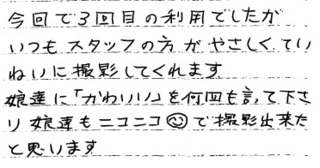 今回で3回目の利用でしたが
いつもスタッフの方がやさしくてい
ねいに撮影してくれます
娘達に「かわいい!」を何回も言って下さ
り娘達もニコニコ☺で撮影出来た
と思います